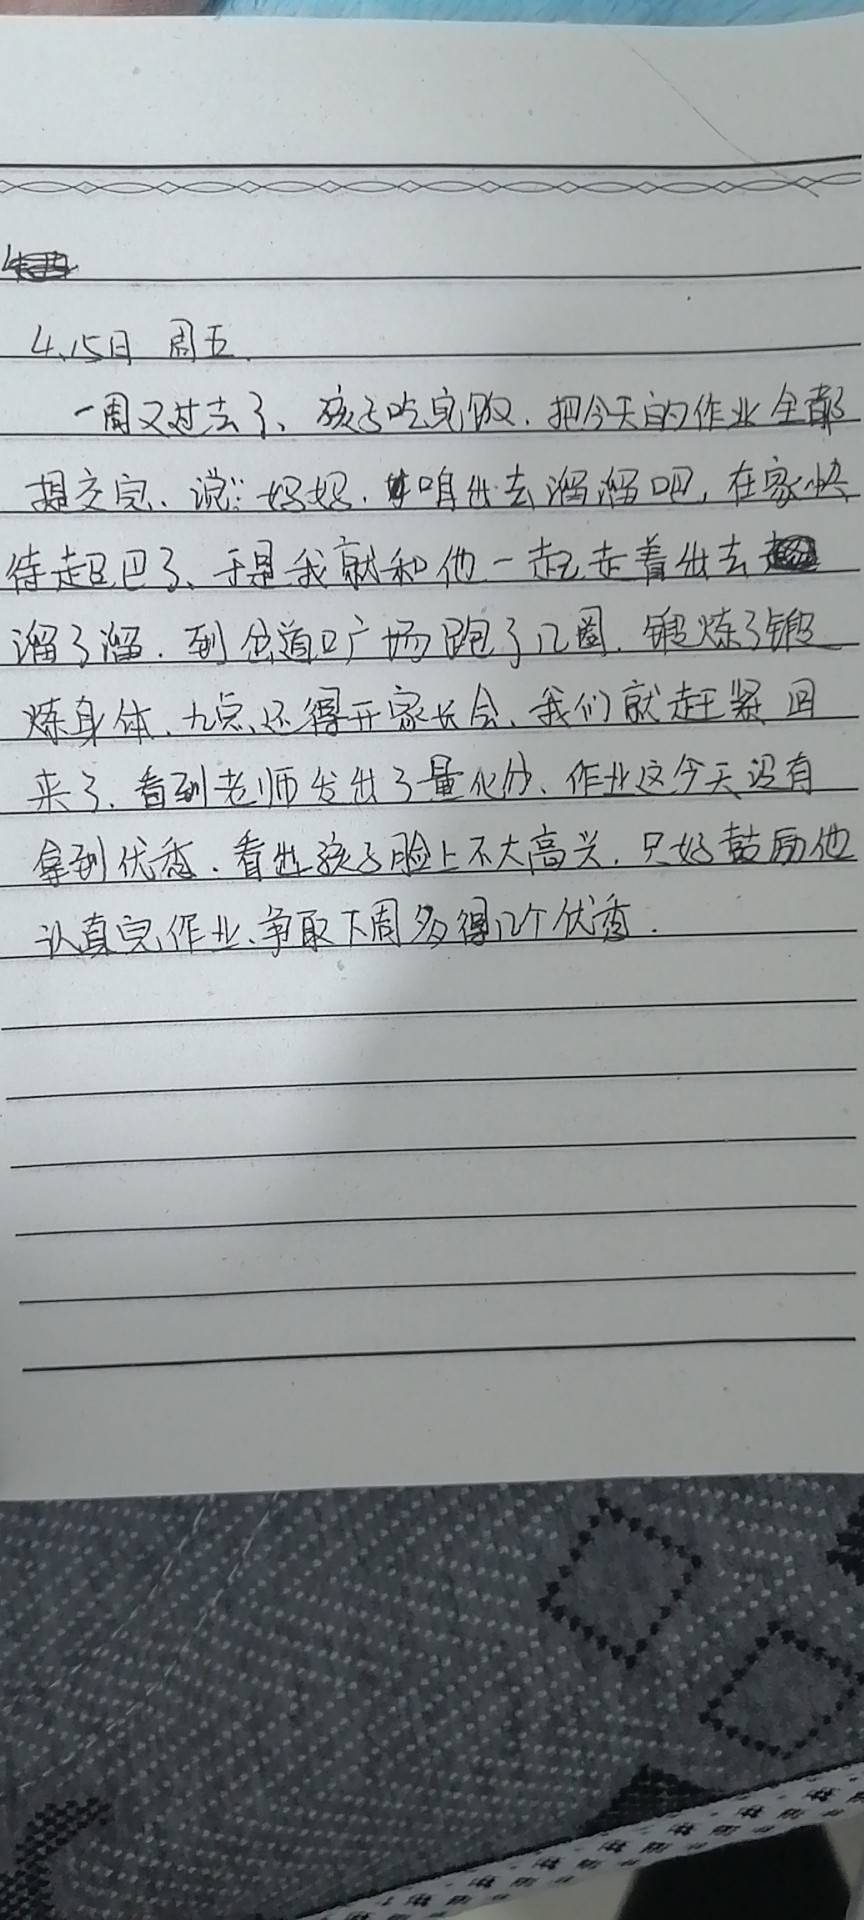 4.15日 周五.
一周又过去了、孩子吃完饭.把今天的作业全都
提交完、说:"妈妈.咱出去溜溜吧,在家快
待起巴了、于是我就和他一起走着出去
溜了溜.到岔道口广场跑了几圈.锻炼了锻
炼身体、九点还得开家长会、我们就赶紧回
来了.看到老师发出了量化分、作业这今天没有
拿到优秀.看出孩子脸上不大高兴.只好鼓励他
认真完作业、争取下周多得几个优秀.